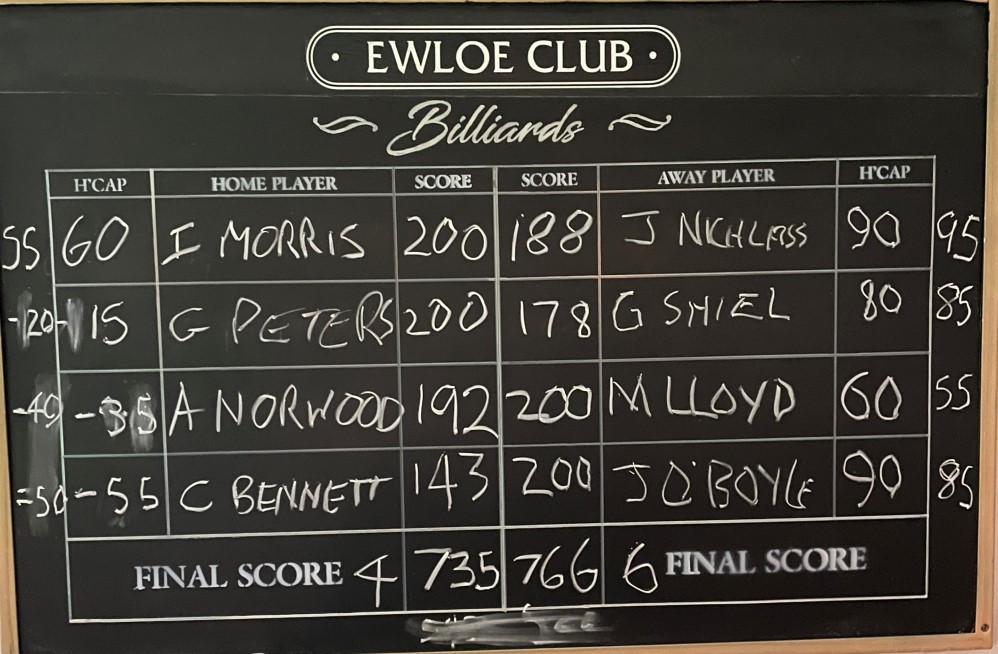 · EWLOE CLUB ·
Billiards
H'CAP HOME PLAYER SCORE SCORE AWAY PLAYER H'CAP
55 60 I MORRIS 200 188 J NICHLASS 90 95
-20 -15 G PETERS 200 178 G SHIEL 80 85
-40 -35 A NORWOOD 192 200 M LLOYD 60 55
-50 -55 C BENNETT 143 200 J O'BOYLE 90 85
FINAL SCORE 4 735 766 6 FINAL SCORE